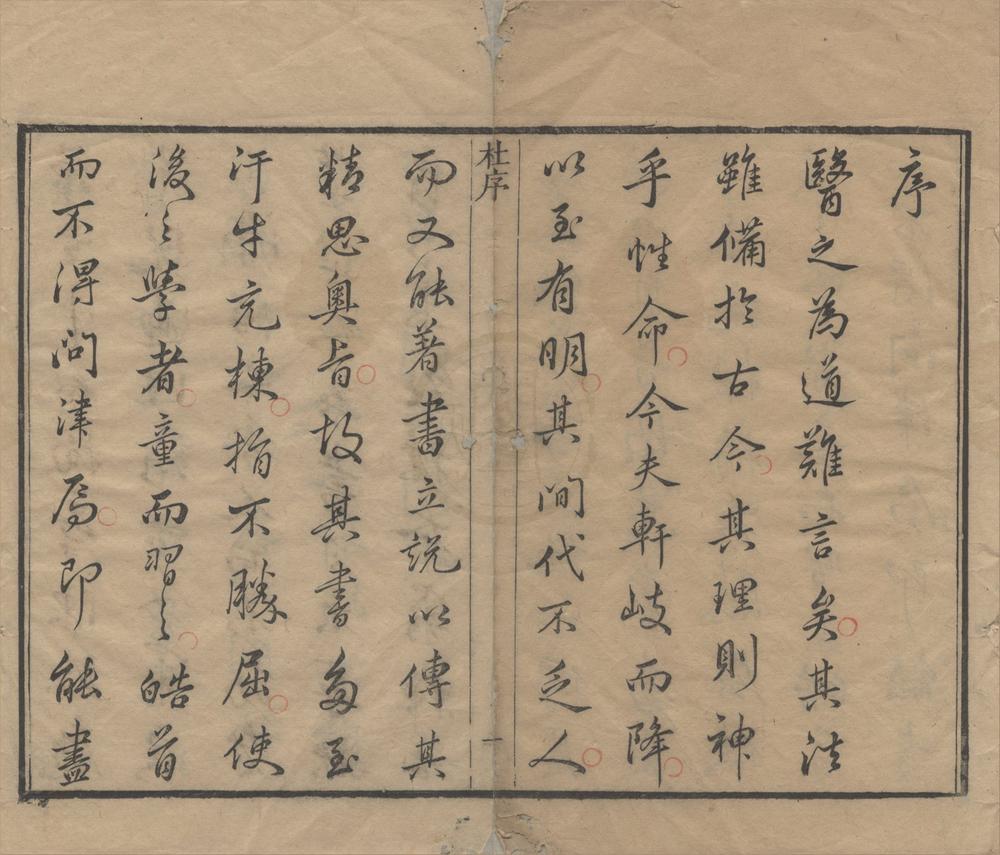 序
醫之為道難言矣其法
雖備於古今其理則神
乎性命今夫軒岐而降
以至有明其間代不乏人
杜序
一
而又能著書立說以傳其
精思奧旨故其書多至
汗牛充棟指不勝屈使
後之學者童而習之皓首
而不得問津焉即能盡